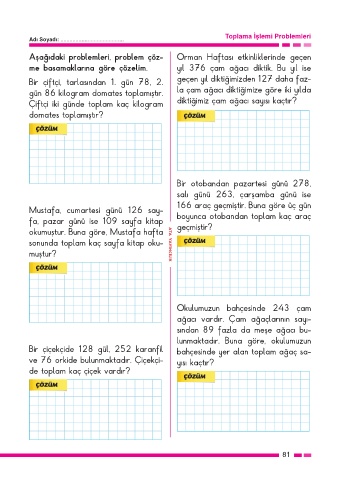 Toplama İşlemi Problemleri
Adı Soyadı: ..............................
Aşağıdaki problemleri, problem çöz-
me basamaklarına göre çözelim.
Bir çiftçi, tarlasından 1. gün 78, 2.
gün 86 kilogram domates toplamıştır.
Çiftçi iki günde toplam kaç kilogram
domates toplamıştır?
ÇÖZÜM
Mustafa, cumartesi günü 126 say-
fa, pazar günü ise 109 sayfa kitap
okumuştur. Buna göre, Mustafa hafta
sonunda toplam kaç sayfa kitap oku-
muştur?
ÇÖZÜM
Bir çiçekçide 128 gül, 252 karanfil
ve 76 orkide bulunmaktadır. Çiçekçi-
de toplam kaç çiçek vardır?
ÇÖZÜM
Orman Haftası etkinliklerinde geçen
yıl 376 çam ağacı diktik. Bu yıl ise
geçen yıl diktiğimizden 127 daha faz-
la çam ağacı diktiğimize göre iki yılda
diktiğimiz çam ağacı sayısı kaçtır?
ÇÖZÜM
Bir otobandan pazartesi günü 278,
salı günü 263, çarşamba günü ise
166 araç geçmiştir. Buna göre üç gün
boyunca otobandan toplam kaç araç
geçmiştir?
ÇÖZÜM
Okulumuzun bahçesinde 243 çam
ağacı vardır. Çam ağaçlarının sayı-
sından 89 fazla da meşe ağacı bu-
lunmaktadır. Buna göre, okulumuzun
bahçesinde yer alan toplam ağaç sa-
yısı kaçtır?
ÇÖZÜM
81